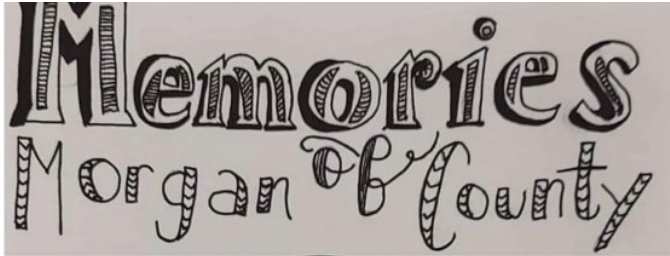 Memories
of
Morgan County